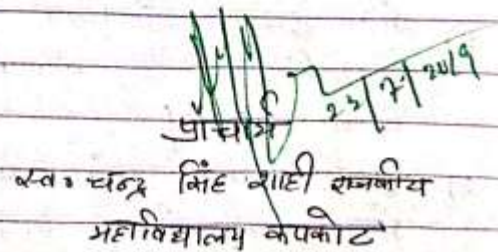 23/7/2019
प्राचार्य
स्व० चन्द्र सिंह शाही राजकीय
महाविद्यालय कपकोट